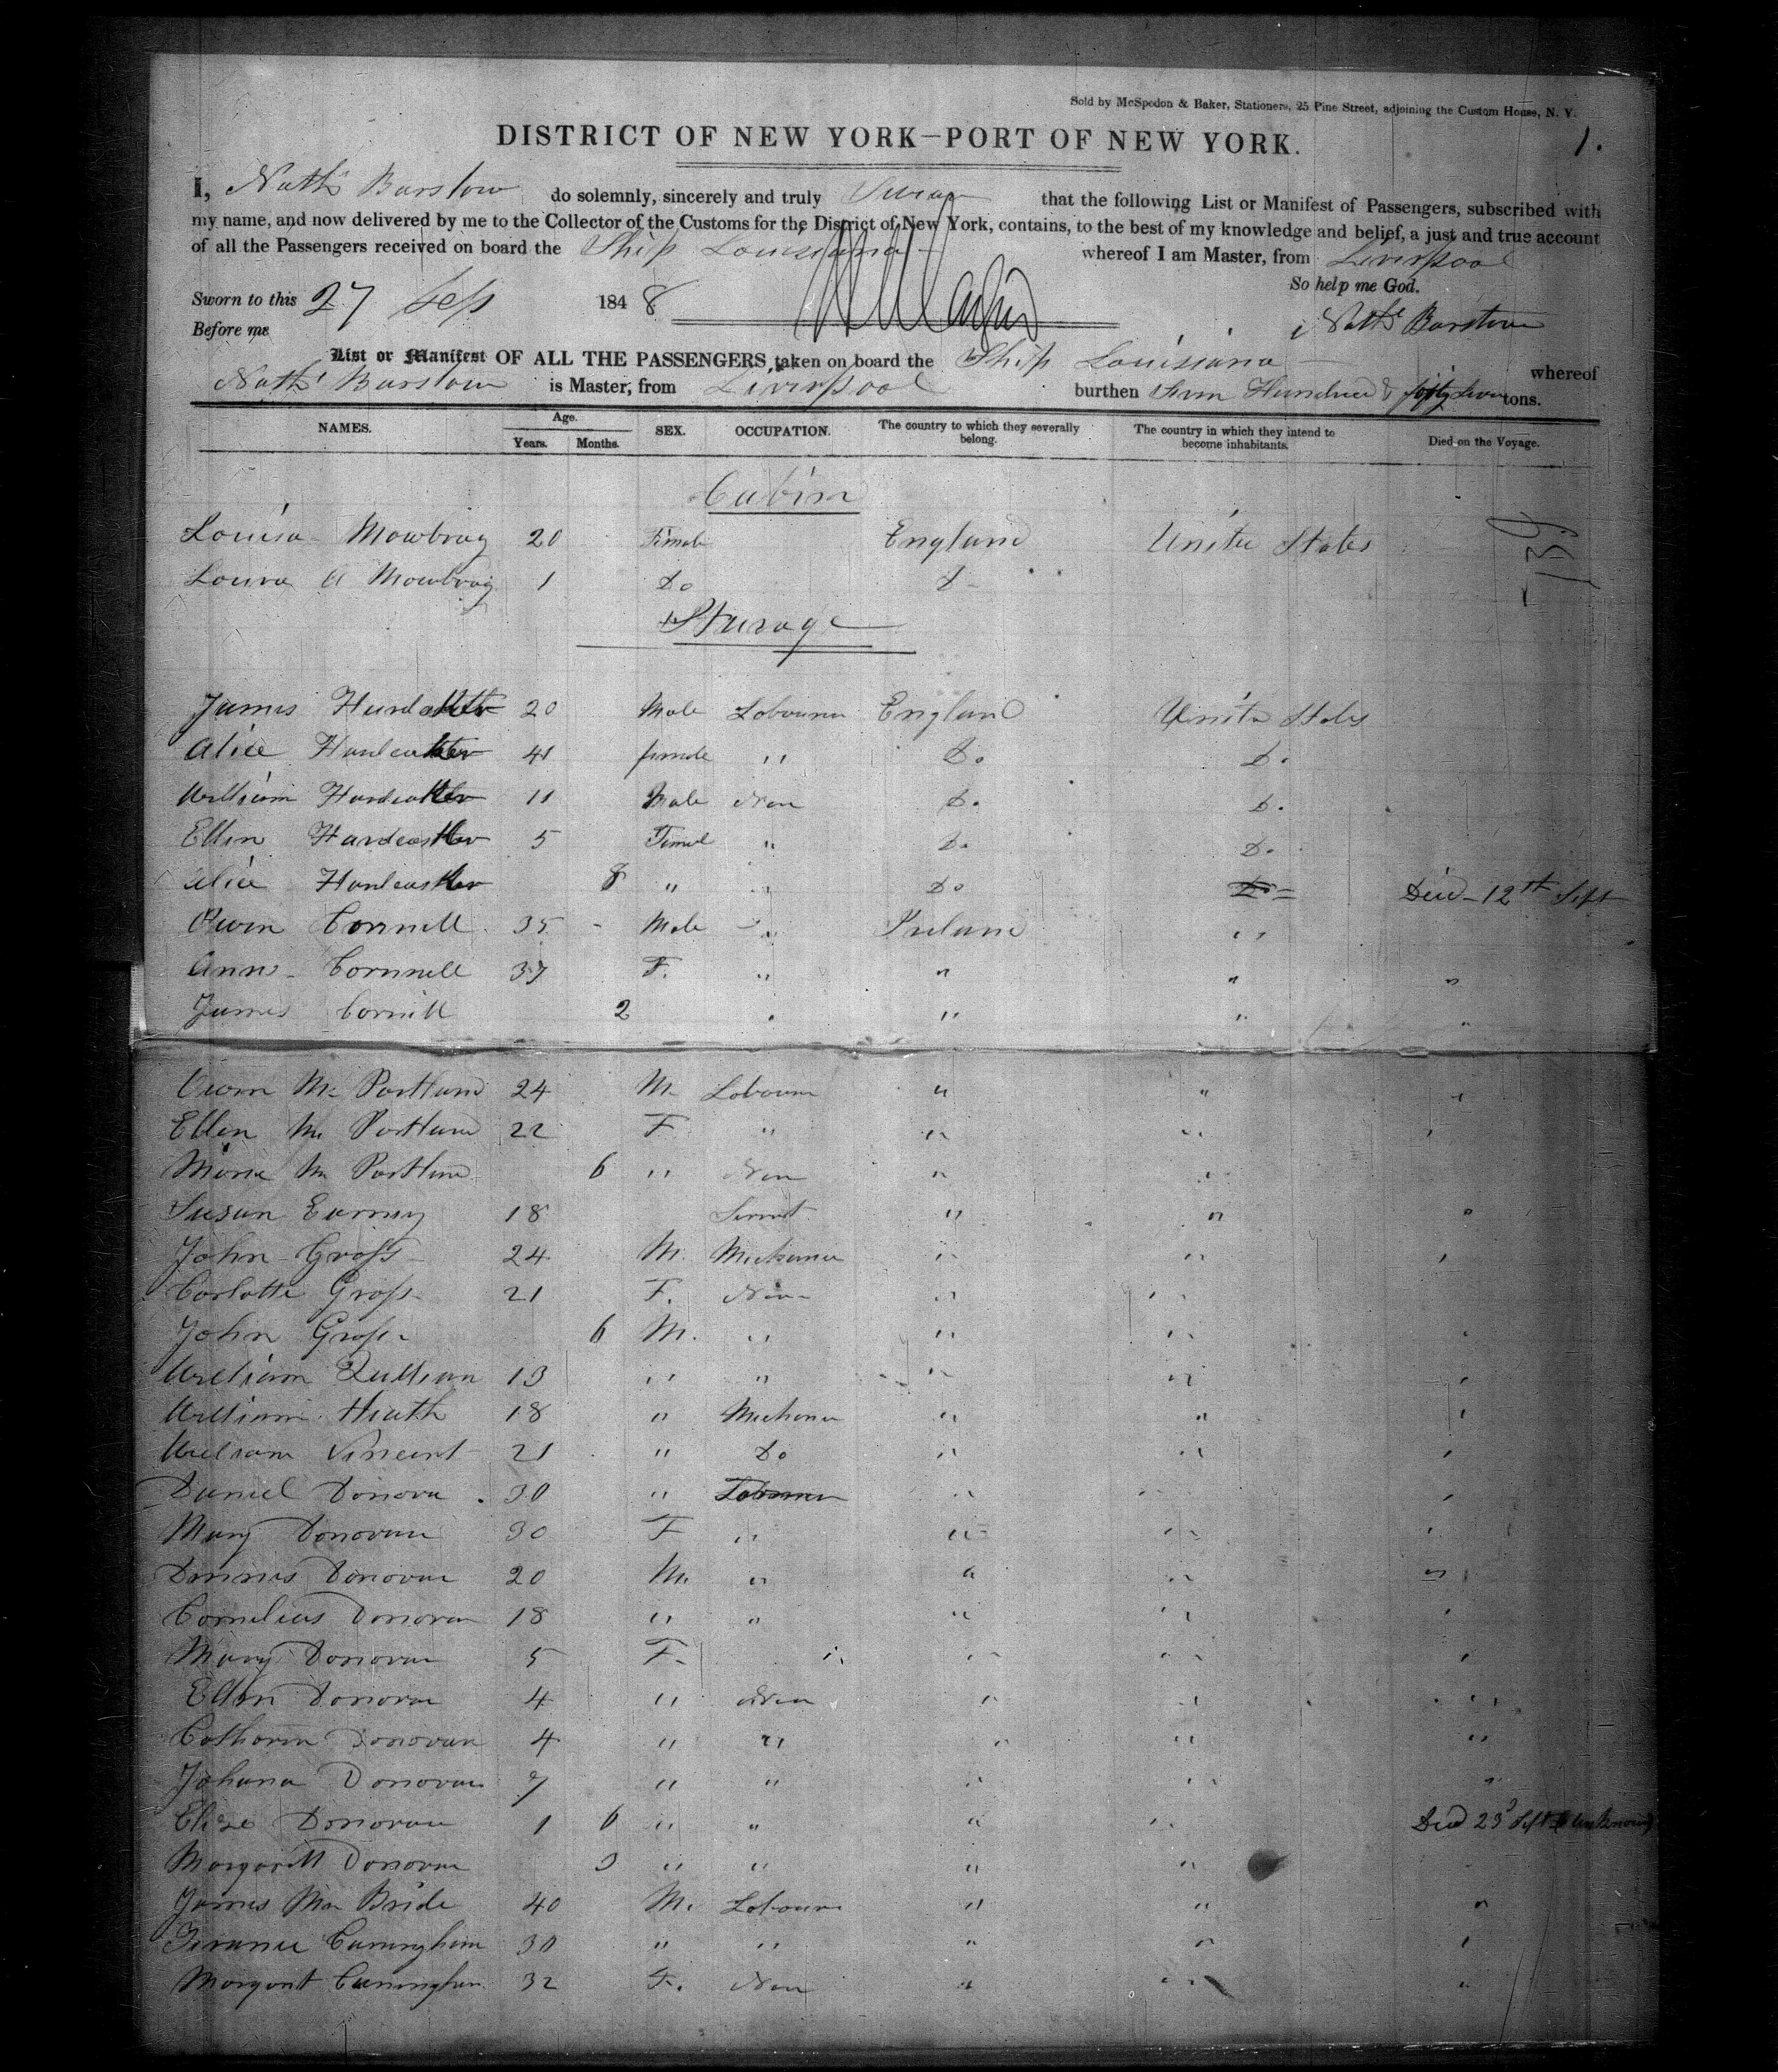 Sold by McSpedon & Baker, Stationers, 25 Pine Street, adjoining the Custom House, N. Y.
1.
DISTRICT OF NEW YORK—PORT OF NEW YORK.
I, Nath Barstow do solemnly, sincerely and truly Swear that the following List or Manifest of Passengers, subscribed with
my name, and now delivered by me to the Collector of the Customs for the District of New York, contains, to the best of my knowledge and belief, a just and true account
of all the Passengers received on board the Ship Louisiana whereof I am Master, from Liverpool
So help me God.
Sworn to this 27 Sep 1848
Before me Nath Barstow
List or Manifest OF ALL THE PASSENGERS taken on board the Ship Louisiana whereof
Nath Barstow is Master, from Liverpool burthen Hundred & fifty seven tons.
NAMES. Age. Years. Months. SEX. OCCUPATION. The country to which they severally belong. The country in which they intend to become inhabitants. Died on the Voyage.
Cabin
Louisa Mowbray 20 Female England United States
Louisa A Mowbray 1 Do D
Sturage
James 20 Male Labourer England United States
Alice Hardcastle 41 female " Do Do
William Hardcastle 11 Male Non Do Do
Ellen Hardcastle 5 Female " Do Do
Alice Hardcastle 8 " " Do Do Died 12th Sept
Owen Connell 35 - Male " Ireland "
Ann Cornnell 37 F. " " " "
James Cornill 2 " " "
Owen Mc Portland 24 M. Labourer " " "
Ellen Mc Portland 22 F " " " "
Maria Mc Portland 6 " Non " "
Susan 18 Servnt " " "
John Gross 24 M. Mechanic " " "
Carlotte Gross 21 F. Non " "
John Gross 6 M. " " " "
William 13 " " " " "
William Heath 18 " Mechanic " " "
William Vincent 21 " Do " " "
Daniel Donova 30 " Labourer " " "
Mary Donovan 30 F " " " "
Dennis Donovan 20 M. " " " "
Cornelius Donovan 18 " " " " "
Mary Donovan 5 F. " " " "
Ellen Donovan 4 " Non " " "
Catharin Donovan 4 " " " " "
Johana Donovan 7 " " " " "
Elize Donovan 1 6 " " " " Died 23d Sept Unknown
Margarett Donovan 3 " " " "
James Mc Bride 40 M. Labourer " " "
Cuningham 30 " " " " "
Margart Cunningham 32 F. Non " " "